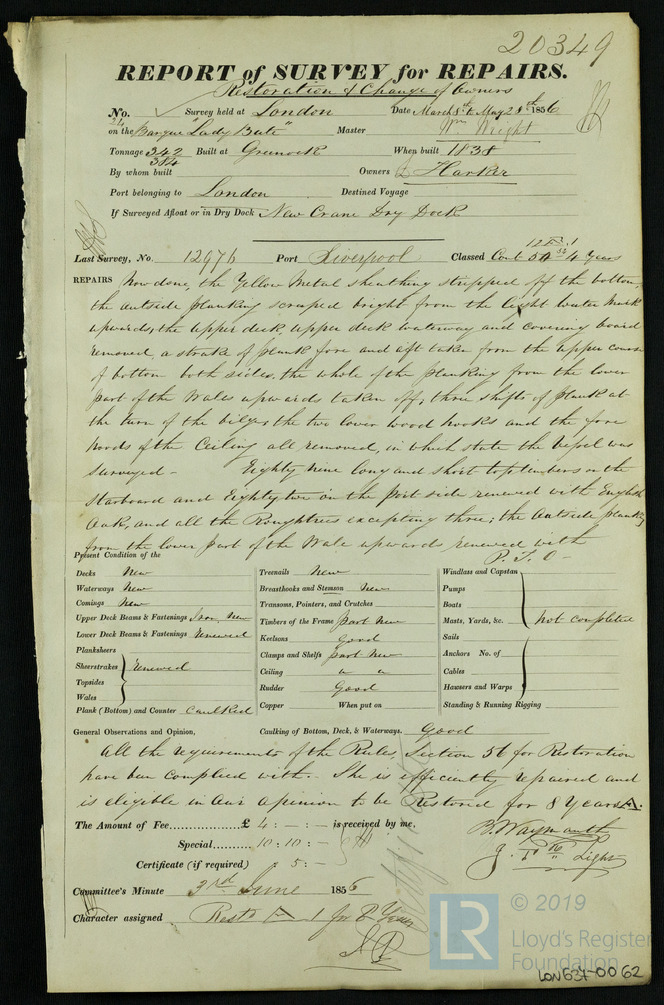 20349
REPORT of SURVEY for REPAIRS.
Restoration & Change of Owners
No. Survey held at London Date March 8th & May 28th 1856
on the Barque "Lady Bute" Master Wm Wright
Tonnage 342 Built at Greenock When built 1838
384
By whom built Owners Harker
Port belonging to London Destined Voyage
If Surveyed Afloat or in Dry Dock New Crane Dry Dock
12 A 1
Last Survey, No. 12976 Port Liverpool Classed Cont 54 4 Years
REPAIRS Now done, the Yellow Metal sheathing stripped off the bottom,
the outside planking scraped bright from the light water mark
upwards, the upper deck, upper deck waterway and covering board
removed, a strake of plank fore and aft taken from the upper course
of bottom both sides, the whole of the planking from the lower
part of the Wales upwards taken off, three shifts of plank at
the turn of the bilges, the two lower wood hooks and the fore
hoods of the Ceiling all removed, in which state the vessel was
surveyed - Eighty nine long and short toptimbers on the
starboard and Eighty two on the port side renewed with English
Oak, and all the Roughtrees excepting three; the outside planking
from the lower part of the Wale upwards renewed with
P. T. O -
Present Condition of the
Decks New
Waterways New
Comings New
Upper Deck Beams & Fastenings Iron, New
Lower Deck Beams & Fastenings Renewed
Planksheers
Sheerstrakes Renewed
Topsides
Wales
Plank (Bottom) and Counter Caulked
Treenails New
Breasthooks and Stemson New
Transoms, Pointers, and Crutches
Timbers of the Frame part New
Keelsons Good
Clamps and Shelfs part New
Ceiling " "
Rudder Good
Copper When put on
Windlass and Capstan
Pumps
Boats
Masts, Yards, &c. not completed
Sails
Anchors No. of
Cables
Hawsers and Warps
Standing & Running Rigging
General Observations and Opinion, Caulking of Bottom, Deck, & Waterways. Good
All the requirements of the Rules Section 56 for Restoration
have been complied with. She is efficiently repaired and
is eligible in our opinion to be Restored for 8 Years A.
The Amount of Fee £ 4 : - : - is received by me,
Special 10 : 10 : -
Certificate (if required) : 5 : -
B. Waymouth
Light
Committee's Minute 3rd June 1856
Character assigned Restd A 1 for 8 Years
LR © 2019
Lloyd's Register
Foundation
LON637-0062